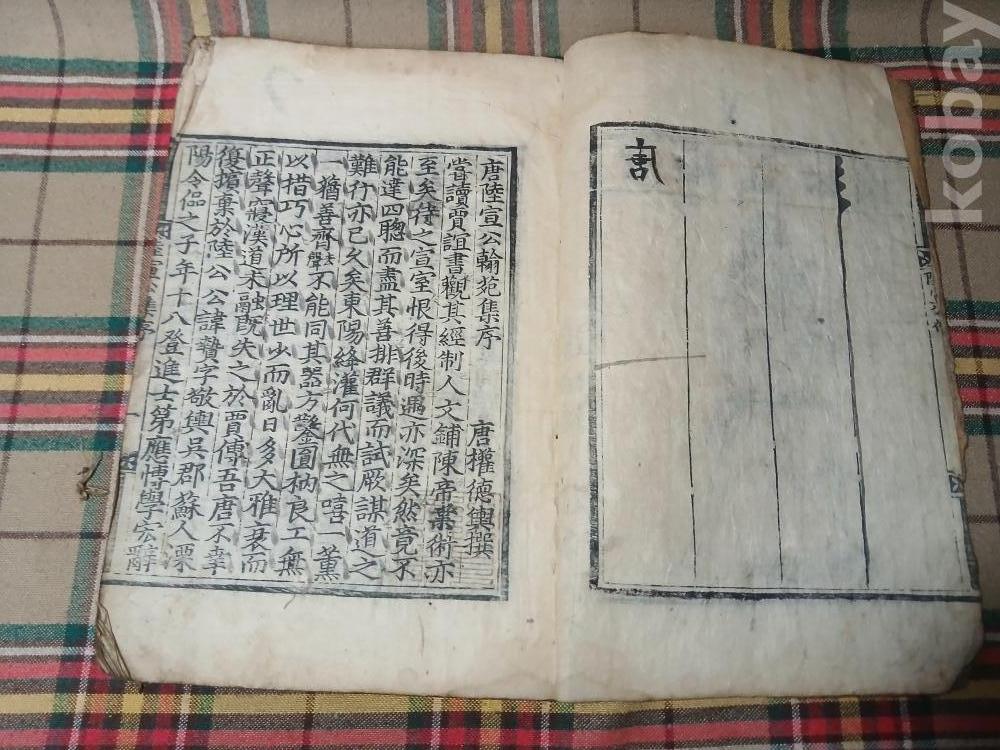 唐
唐陸宣公翰苑集序 唐權德輿撰
嘗讀賈誼書觀其經制人文鋪陳帝業術亦
至矣待之宣室恨得後時遇亦深矣然竟不
能達四聰而盡其善排群議而試厥謀道之
難行亦已久矣東陽絳灌何代無之嘻一薰
一猶善齊去聲不能同其器方鑿圓枘良工無
以措巧心所以理世少而亂日多大雅衰而
正聲寢漢道未融旣失之於賈傅吾唐不幸
復擯棄於陸公公諱贄字敬輿吳郡蘇人栗
陽令偘之子年十八登進士第應博學宏辭
kobay